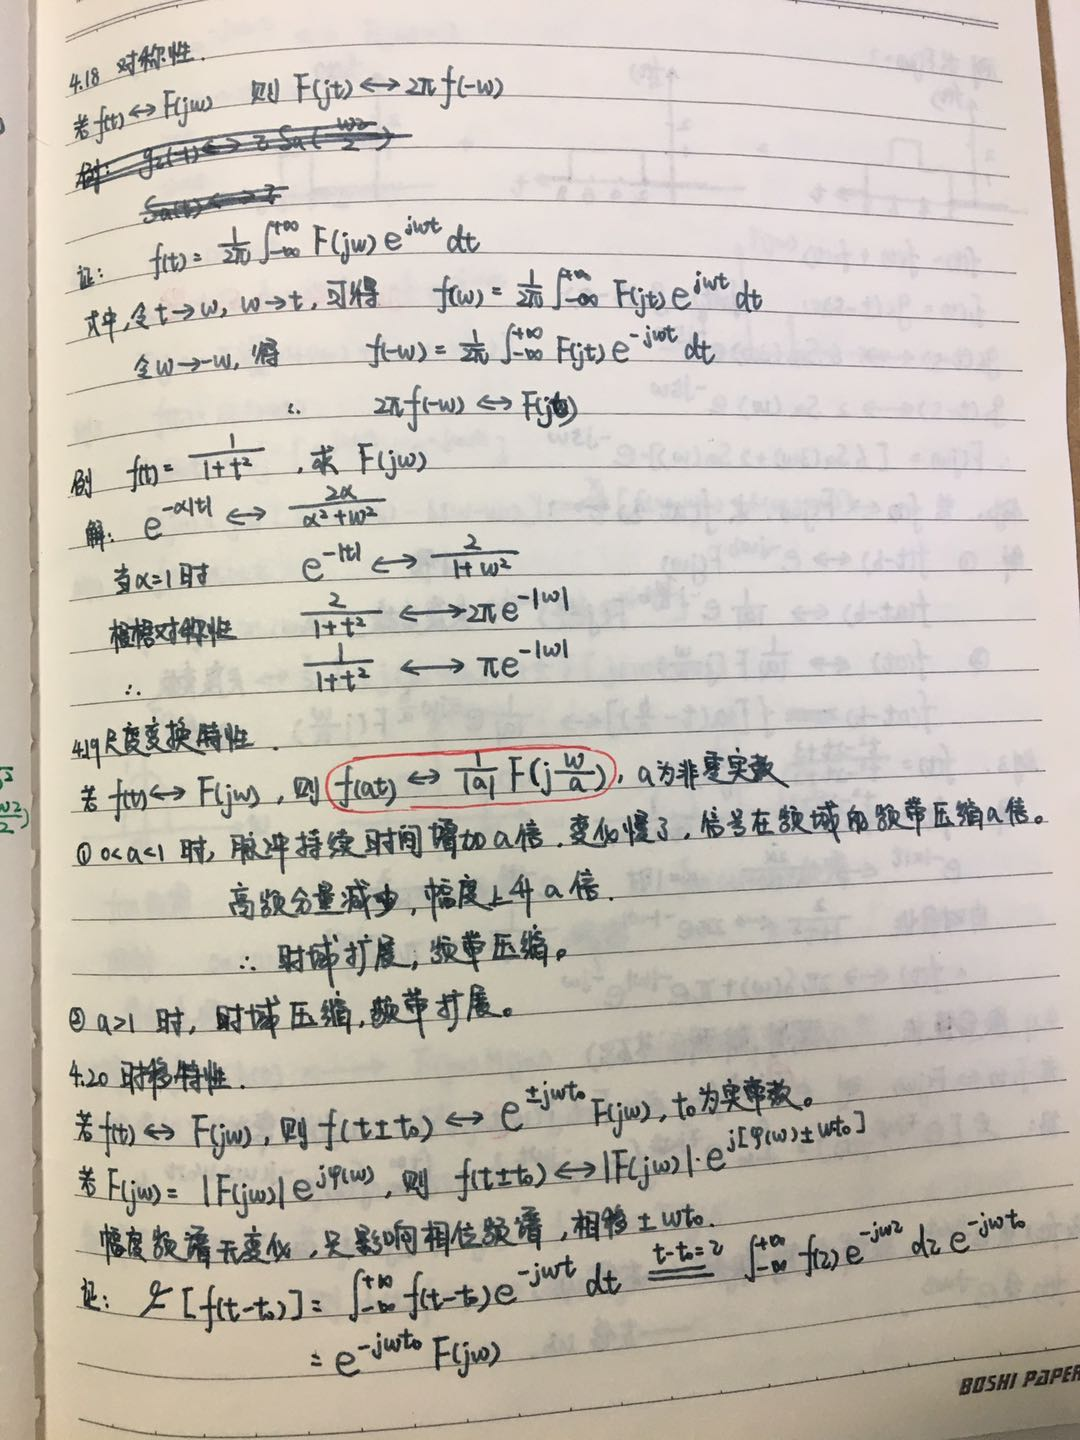 4.18 对称性.
若 f(t)↔F(jw) 则 F(jt)↔2πf(-w)
例: g₂(t)↔
证: f(t)=1/2π ∫_{-∞}^{+∞} F(jw)e^{jwt} dt
式中,令t→w, w→t, 可得 f(w)=1/2π ∫_{-∞}^{+∞} F(jt)e^{jwt} dt
令w→-w, 得 f(-w)=1/2π ∫_{-∞}^{+∞} F(jt)e^{-jwt} dt
∴ 2πf(-w)↔F(jt)
例 f(t)=1/(1+t²), 求 F(jw)
解: e^{-α|t|}↔2α/(α²+w²)
当α=1时 e^{-|t|}↔2/(1+w²)
根据对称性 2/(1+t²)↔2πe^{-|w|}
∴ 1/(1+t²)↔πe^{-|w|}
4.19尺度变换特性.
若 f(t)↔F(jw), 则 f(at)↔1/|a| F(j w/a), a为非零实数
① 0<a<1 时, 脉冲持续时间增加a倍. 变化慢了, 信号在频域的频带压缩a倍。
高频分量减少, 幅度上升a倍.
∴ 时域扩展, 频带压缩。
② a>1 时, 时域压缩, 频带扩展。
4.20 时移特性.
若f(t)↔F(jw), 则 f(t±t₀)↔e^{±jwt₀}F(jw), t₀为实常数。
若F(jw)=|F(jw)|e^{jφ(w)}, 则 f(t±t₀)↔|F(jw)|·e^{j[φ(w)±wt₀]}
幅度频谱无变化, 只影响相位频谱, 相移±wt₀.
证: ℱ[f(t-t₀)]=∫_{-∞}^{+∞} f(t-t₀)e^{-jwt} dt =(t-t₀=z)= ∫_{-∞}^{+∞} f(z)e^{-jwz} dz e^{-jwt₀}
=e^{-jwt₀}F(jw)
BOSHI PAPER